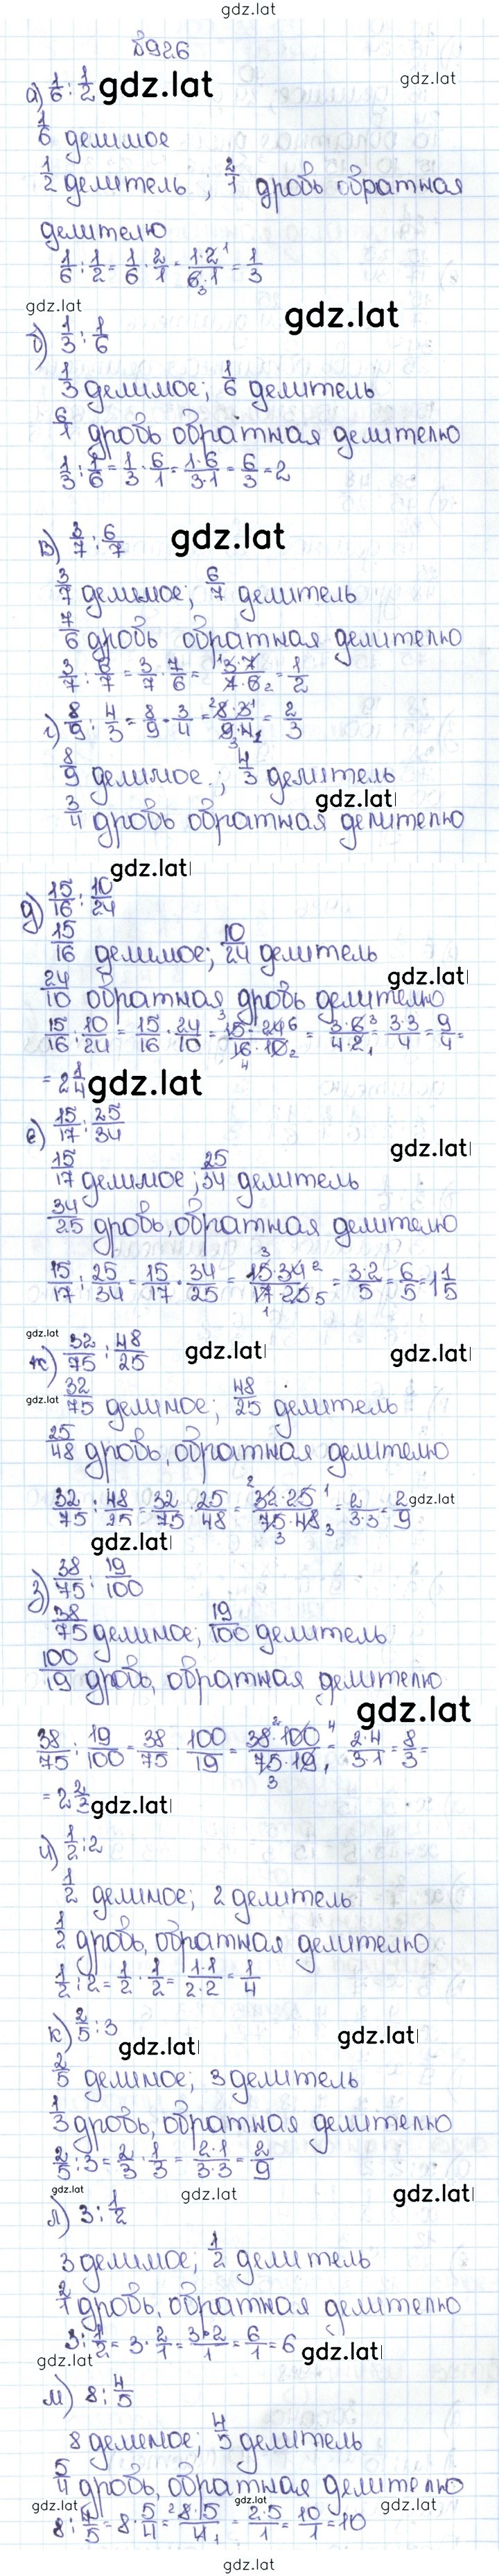 gdz.lat
№926
а) 1/6 : 1/2 gdz.lat gdz.lat
1/6 делимое
1/2 делитель ; 2/1 дробь обратная
делителю
1/6 : 1/2 = 1/6 · 2/1 = 1·2/6·1 = 1/3
gdz.lat gdz.lat
б) 1/3 : 1/6
1/3 делимое; 1/6 делитель
6/1 дробь обратная делителю
1/3 : 1/6 = 1/3 · 6/1 = 1·6/3·1 = 6/3 = 2
в) 3/7 : 6/7 gdz.lat
3/7 делимое; 6/7 делитель
7/6 дробь обратная делителю
3/7 : 6/7 = 3/7 · 7/6 = 3·7/7·6 = 1/2
г) 8/9 : 4/3 = 8/9 · 3/4 = 8·3/9·4 = 2/3
8/9 делимое ; 4/3 делитель
gdz.lat
3/4 дробь обратная делителю
gdz.lat
д) 15/16 : 10/24
15/16 делимое; 10/24 делитель
gdz.lat
24/10 обратная дробь делителю
15/16 : 10/24 = 15/16 · 24/10 = 15·24/16·10 = 3·6/4·2 = 3·3/4 = 9/4 =
= 2 1/4 gdz.lat
е) 15/17 : 25/34 gdz.lat
15/17 делимое ; 25/34 делитель
34/25 дробь, обратная делителю
15/17 : 25/34 = 15/17 · 34/25 = 15·34/17·25 = 3·2/5 = 6/5 = 1 1/5
gdz.lat gdz.lat gdz.lat
ж) 32/75 : 48/25
gdz.lat 32/75 делимое; 48/25 делитель
25/48 дробь, обратная делителю
32/75 : 48/25 = 32/75 · 25/48 = 32·25/75·48 = 2/3·3 = 2/9 gdz.lat
gdz.lat
з) 38/75 : 19/100
38/75 делимое; 19/100 делитель
100/19 дробь, обратная делителю
gdz.lat
38/75 : 19/100 = 38/75 · 100/19 = 38·100/75·19 = 2·4/3·1 = 8/3 =
= 2 2/3 gdz.lat
и) 1/2 : 2
1/2 делимое; 2 делитель
1/2 дробь, обратная делителю
1/2 : 2 = 1/2 · 1/2 = 1·1/2·2 = 1/4
к) 2/5 : 3 gdz.lat gdz.lat
2/5 делимое; 3 делитель
1/3 дробь, обратная делителю
2/5 : 3 = 2/3 · 1/3 = 2·1/3·3 = 2/9
gdz.lat gdz.lat gdz.lat
л) 3 : 1/2
3 делимое; 1/2 делитель
2/1 дробь, обратная делителю
3 : 1/2 = 3 · 2/1 = 3·2/1 = 6/1 = 6 gdz.lat
gdz.lat
м) 8 : 4/5
8 делимое; 4/5 делитель
5/4 дробь, обратная делителю
gdz.lat gdz.lat gdz.lat
8 : 4/5 = 8 · 5/4 = 8·5/4 = 2·5/1 = 10/1 = 10
gdz.lat